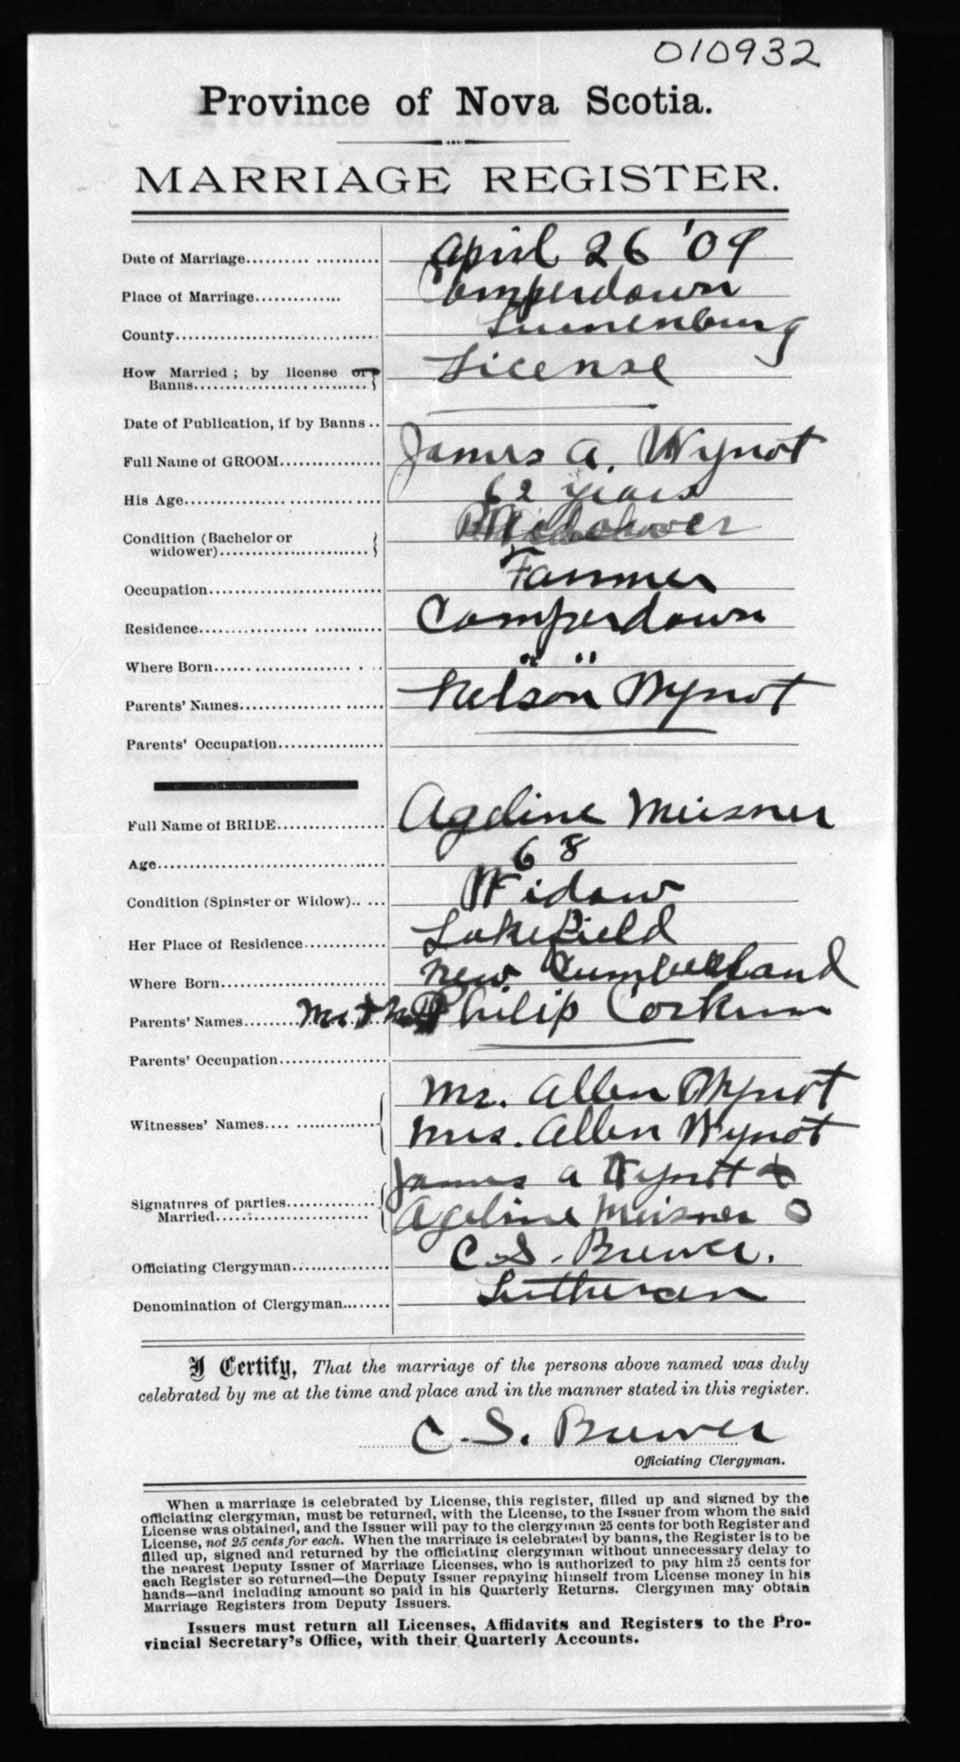 010932
Province of Nova Scotia.
MARRIAGE REGISTER.
Date of Marriage.......... .......... April 26 '09
Place of Marriage............. Camperdown
County............................... Lunenburg
How Married ; by license or
Banns.................................. License
Date of Publication, if by Banns ..
Full Name of GROOM................ James A. Wynot
His Age............................... 62 years
Condition (Bachelor or
widower)......................... Widower
Occupation........................... Farmer
Residence............................ Camperdown
Where Born..................... . . " "
Parents' Names....................... Nelson Wynot
Parents' Occupation.................
Full Name of BRIDE................. Ageline Meisner
Age.................................... 68
Condition (Spinster or Widow).. ... Widow
Her Place of Residence............. Lakefield
Where Born........................... New Cumberland
Parents' Names........ Philip Corkum
Parents' Occupation.................
Mr. Allen Wynot
Witnesses' Names.... ............... Mrs. Allen Wynot
James A Wynott x
Signatures of parties..............
Married....................... Ageline Meisner O
Officiating Clergyman............... C. S. Brewer.
Denomination of Clergyman........ Lutheran
I Certify, That the marriage of the persons above named was duly
celebrated by me at the time and place and in the manner stated in this register.
C. S. Brewer
Officiating Clergyman.
When a marriage is celebrated by License, this register, filled up and signed by the
officiating clergyman, must be returned, with the License, to the Issuer from whom the said
License was obtained, and the Issuer will pay to the clergyman 25 cents for both Register and
License, not 25 cents for each. When the marriage is celebrated by banns, the Register is to be
filled up, signed and returned by the officiating clergyman without unnecessary delay to
the nearest Deputy Issuer of Marriage Licenses, who is authorized to pay him 25 cents for
each Register so returned—the Deputy Issuer repaying himself from License money in his
hands—and including amount so paid in his Quarterly Returns. Clergymen may obtain
Marriage Registers from Deputy Issuers.
Issuers must return all Licenses, Affidavits and Registers to the Pro-
vincial Secretary's Office, with their Quarterly Accounts.